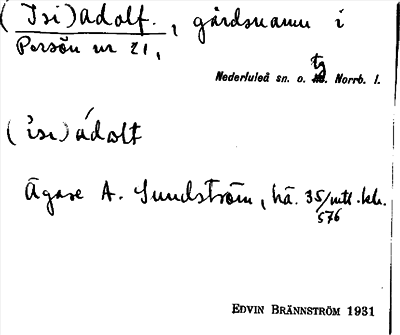 (Isi)adolf., gårdsnamn i
Persön nr 21,
Nederluleå sn. o. tg Norrb. l.
(isı)ádolt
Ägare A. Sundström, hä. 35/576 mtl. kr.
EDVIN BRÄNNSTRÖM 1931